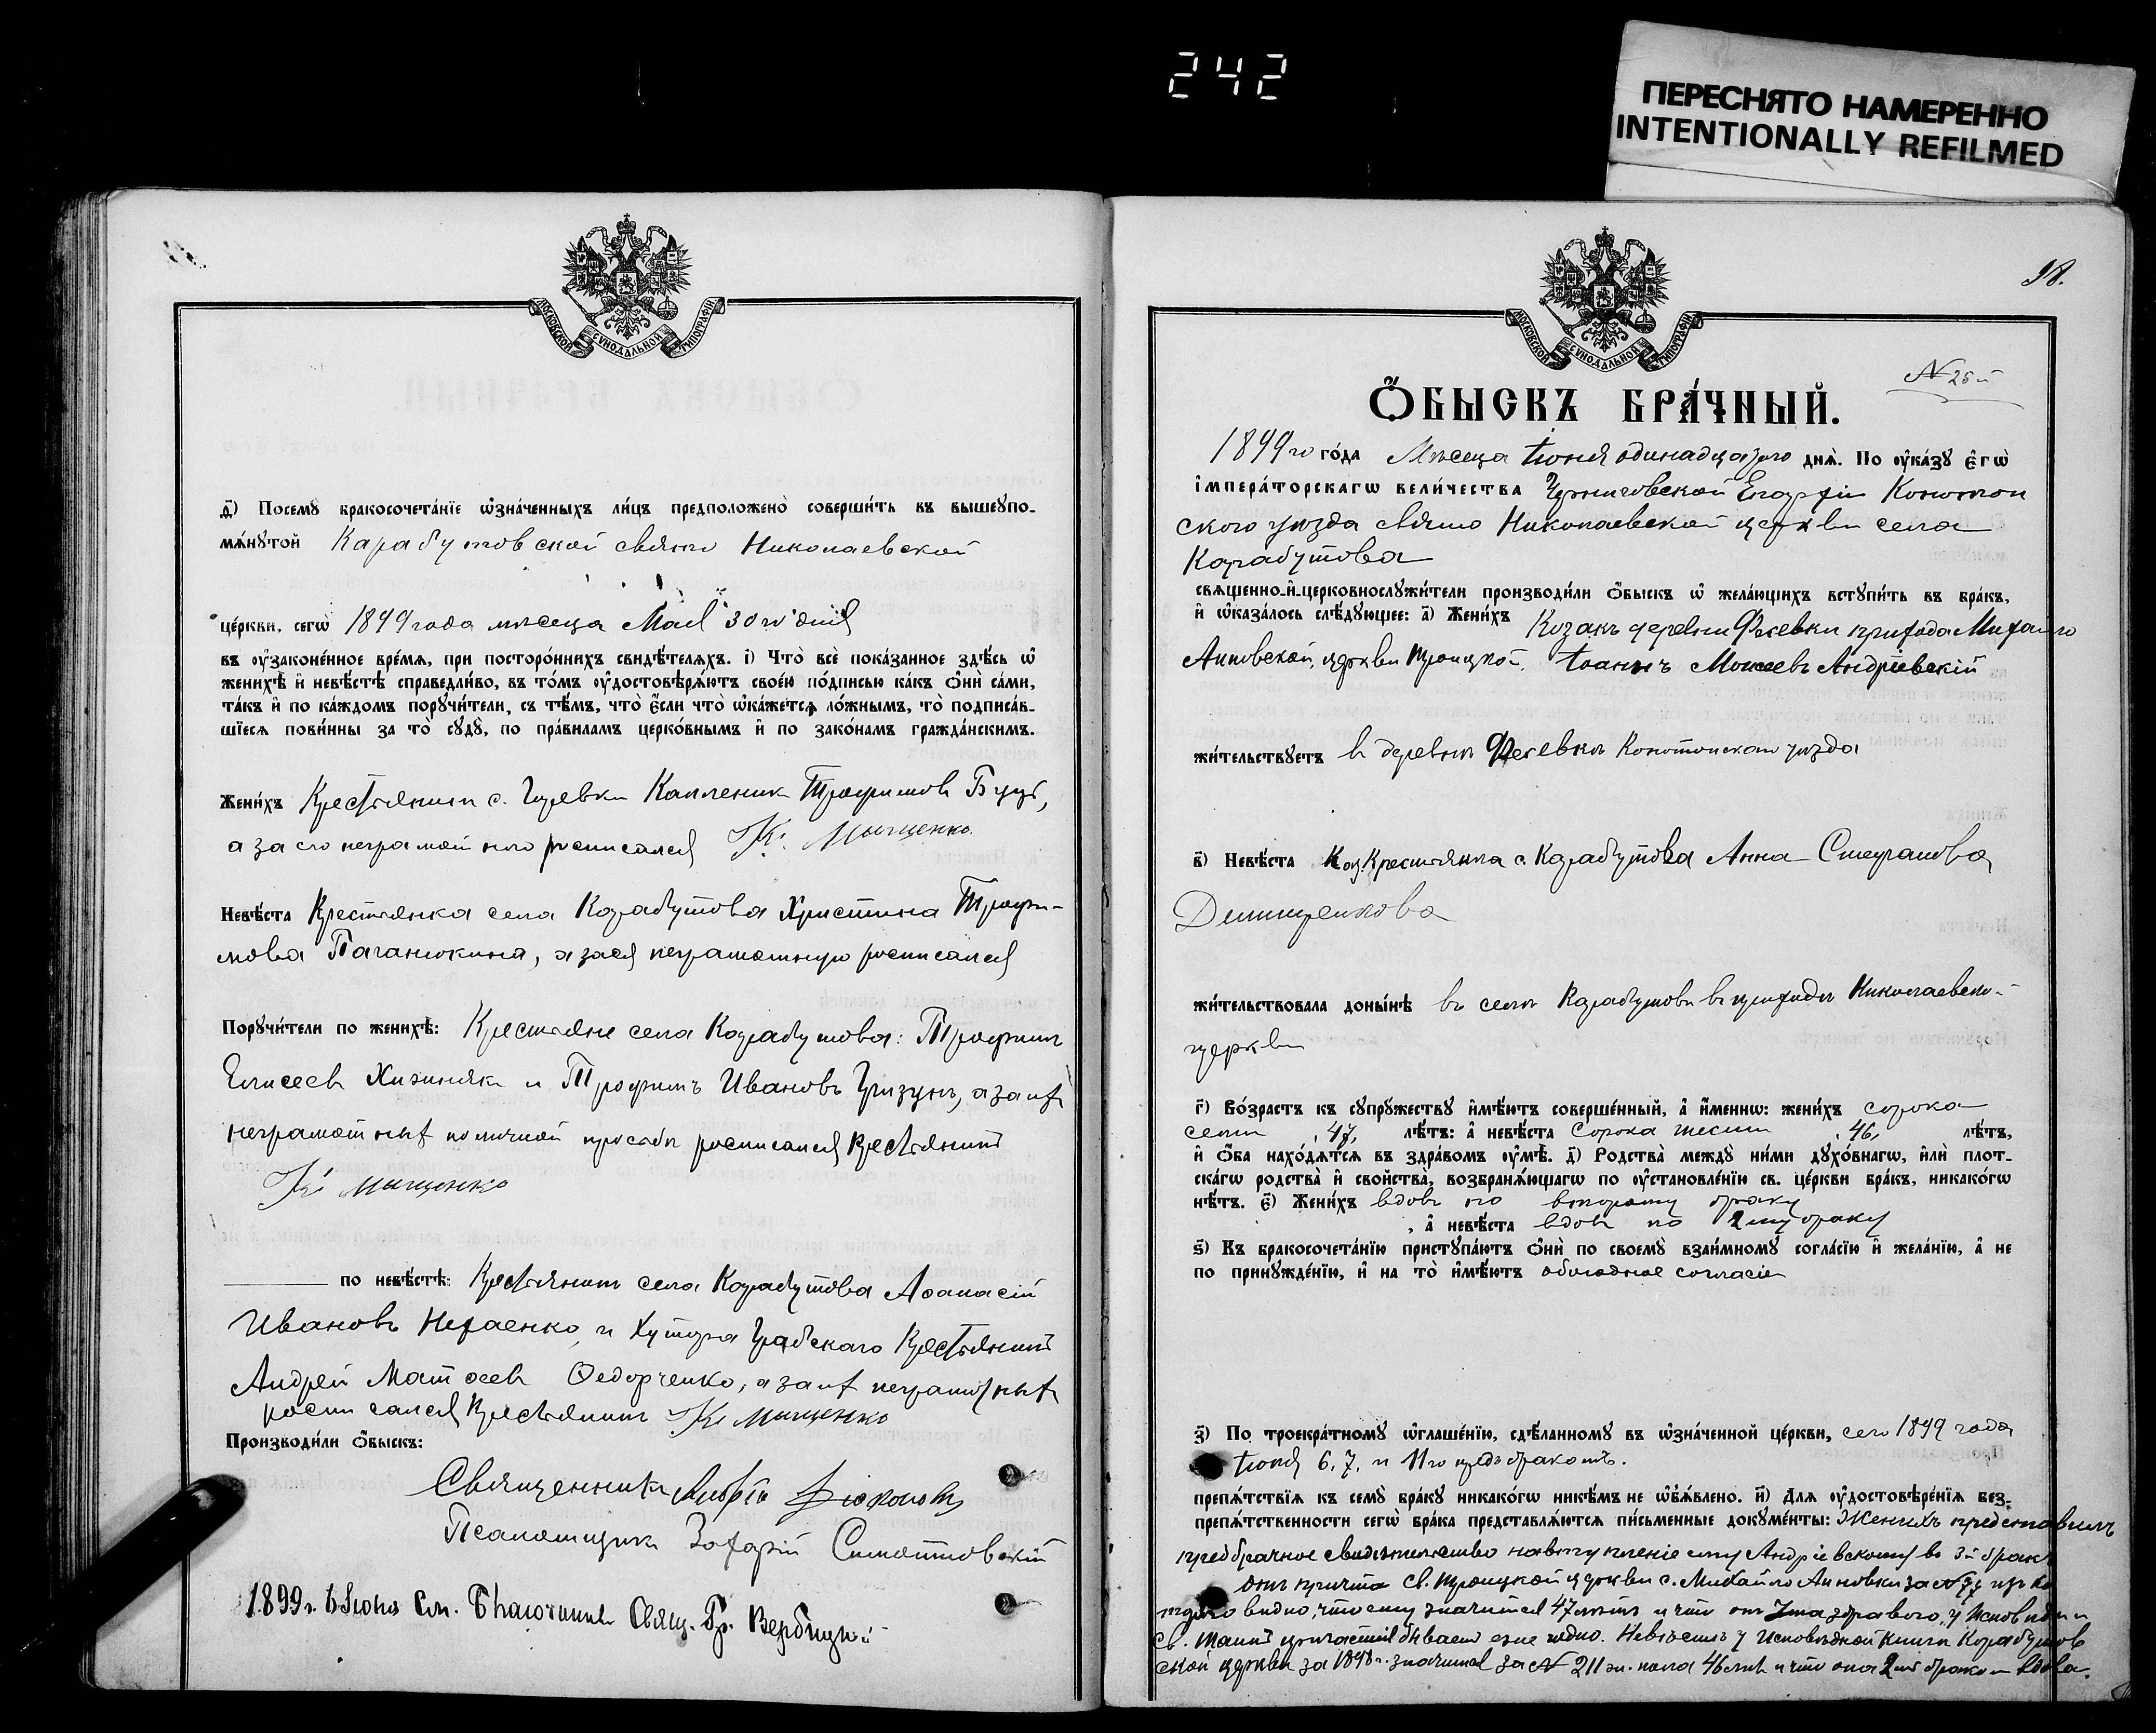 242
ПЕРЕСНЯТО НАМЕРЕННО
INTENTIONALLY REFILMED
МОСКОВСКОЙ СУНОДАЛЬНОЙ ТИПОГРАФІИ
д҃) Посемꙋ̀ бракосочета́нїе ѡ҆зна́ченныхъ ли́цъ предположено̀ соверши́ть въ вышеꙋпо-
мѧ́нꙋтой Карабутовской свято Николаевской
це́ркви, сегѡ̀ 1899 года мѣсеца Мая 30го дня
въ ᲂу҆законе́нное вре́мѧ, при посторо́ннихъ свидѣ́телѧхъ. і҃) Что̀ всѐ пока́занное здѣ́сь ѡ҆
женихѣ̀ и҆ невѣ́стѣ справедли́во, въ то́мъ ᲂу҆достовѣрѧ́ютъ свое́ю по́дписью ка́къ ѻ҆нѝ са́ми,
та́къ и҆ по ка́ждомъ порꙋчи́тели, съ тѣ́мъ, что̀ є҆́сли что̀ ѡ҆ка́жетсѧ ло́жнымъ, то̀ подписа́в-
шїесѧ пови́нны за то̀ сꙋдꙋ̀, по пра́виламъ церко́внымъ и҆ по зако́намъ гражда́нскимъ.
Жени́хъ Крестьянин с. Трофимов Буцъ,
а за его неграмотного росписался К. Мищенко
Невѣ́ста Крестьянка села Карабутова Христина Трофи-
мова Паганюкина, а за ея неграмотную росписался
Порꙋчи́тели по женихѣ̀: Крестьяне села Карабутова: Трофим
Елисеев Хижняк и Трофимъ Ивановъ Гризунъ, а за их
неграмотных по личной просьбѣ росписался Крестьянинъ
К. Мищенко
по невѣ́стѣ: Крестьянинъ села Карабутова Аѳанасій
Ивановъ Нехаенко и Хутора Грабскаго Крестьянинъ
Андрей Матѳеев Ѳедорченко, а за их неграмотных
росписался Крестьянинъ К. Мищенко
Производи́ли ѻ҆́быскъ:
Священникъ Діаконовъ
Псаломщикъ Захарій
1899 г. Іюня См. Благочинный Свящ. Гр. Вербицкій
98.
N 25й
Ѻ҆́БЫСКЪ БРА́ЧНЫЙ.
1899го го́да Мѣсеца Іюня одинадцатого днѧ̀. По ᲂу҆ка́зꙋ є҆гѡ̀
і҆мпера́торскагѡ вели́чества Черниговской Епархіи Конотоп
ского уѣзда свято Николаевской церкви села
Карабутова
свѧще́нно-и҆-церковнослꙋжи́тели производи́ли ѻ҆́быскъ ѡ҆ жела́ющихъ встꙋпи́ть въ бра́къ,
и҆ ѡ҆каза́лось слѣ́дꙋющее: а҃) Жени́хъ Козакъ деревни Фесевки прихода Михайло
Анновской, церкви Троицкой, Іоаннъ Моисеевъ Андріевскій
жи́тельствꙋетъ в деревнѣ Фесевкѣ Конотопскаго уѣзда
в҃) Невѣ́ста Коз. Крестьянка с. Карабутова Анна Стефанова
Дмитренкова
жи́тельствовала доны́нѣ въ селѣ Карабутовѣ в приходѣ Николаевской
церкви
г҃) Во́зрастъ къ сꙋпрꙋ́жествꙋ и҆мѣ́ютъ соверше́нный, а҆ и҆́меннѡ: жени́хъ сорока
семи 47, лѣ́тъ: а҆ невѣ́ста сорока шести 46, лѣ́тъ,
и҆ ѻ҆́ба нахо́дѧтсѧ въ здра́вомъ ᲂу҆мѣ̀. д҃) Родства̀ междꙋ̀ ни́ми дꙋхо́внагѡ, и҆лѝ пло́т-
скагѡ родства̀ и҆ сво́йства, возбранѧ́ющагѡ по ᲂу҆становле́нїю св. це́ркви бра́къ, никако́гѡ
нѣ́тъ. є҃) Жени́хъ вдов по второму браку
, а҆ невѣ́ста вдов по 2му браку
ѕ҃) Къ бракосочета́нїю пристꙋпа́ютъ ѻ҆нѝ по своемꙋ̀ взаи́мномꙋ согла́сїю и҆ жела́нїю, а҆ не
по принꙋжде́нїю, и҆ на то̀ и҆мѣ́ютъ обоюдное согласіе
з҃) По троекра́тномꙋ ѡ҆глаше́нїю, сдѣ́ланномꙋ въ ѡ҆зна́ченной це́ркви, сего 1899 года
Іюня 6, 7, и 11го предъ бракомъ.
препѧ́тствїѧ къ семꙋ̀ бра́кꙋ никако́гѡ никѣ́мъ не ѡ҆б̾ѧ́влено. и҃) Длѧ ᲂу҆достовѣре́нїѧ без-
препѧ́тственности сегѡ̀ бра́ка представлѧ́ютсѧ пи́сьменные докꙋме́нты: Женихъ представилъ
предбрачное свидѣтельство на вступленіе ему Андріевскому во 3й бракъ
отъ причта св. Троицкой церкви с. Михайло Анновки за N 77 изъ ко
тораго видно, что ему значится 47 лѣтъ и что онъ ума здравого, у исповѣди и
св. Таинъ причастія бываетъ еже годно. Невѣста у исповѣдной книги Карабутов
ской церкви за 1898 г. значится за N 211 ж. пола 46 лѣтъ и что она 2мъ бракомъ вдова.